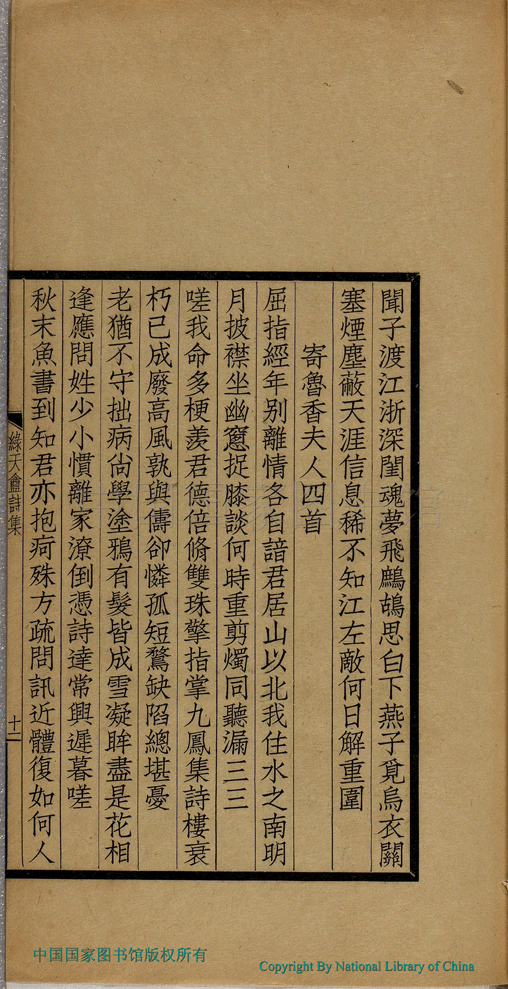 聞子渡江浙深閨魂夢飛鷓鴣思白下燕子覓烏衣關
塞煙塵蔽天涯信息稀不知江左敵何日解重圍
寄魯香夫人四首
屈指經年別離情各自諳君居山以北我住水之南明
月披襟坐幽窻捉膝談何時重剪燭同聽漏三三
嗟我命多梗羨君德倍脩雙珠擎指掌九鳳集詩樓衰
朽已成廢高風孰與儔卻憐孤短鶩缺陷總堪憂
老猶不守拙病尙學塗鴉有髮皆成雪凝眸盡是花相
逢應問姓少小慣離家潦倒憑詩達常興遲暮嗟
秋末魚書到知君亦抱疴殊方疏問訊近體復如何人
綠天盦詩集
十二
中国国家图书馆版权所有
Copyright By National Library of China